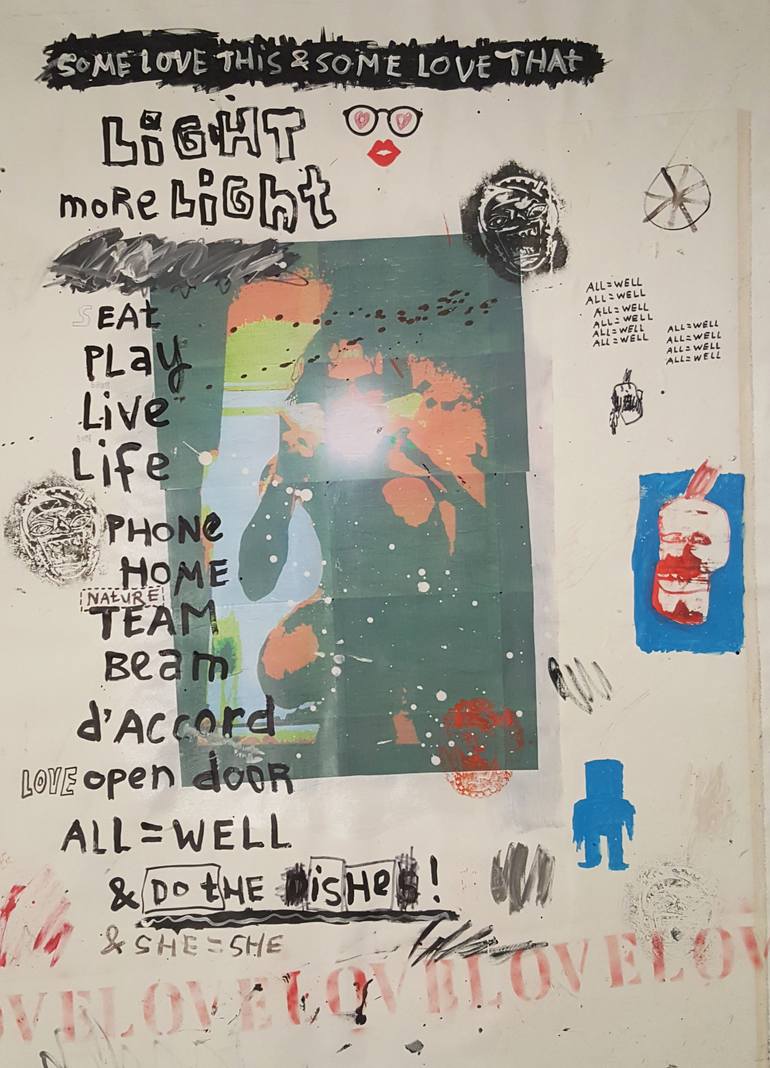 SOME LOVE THiS & SOME LOVE THAt
LiGHT
moRe LiGht
SEAt
PLAy
Live
Life
PHONe
HOME
NAtURE
TEAM
Beam
d'ACCord
LOVE open dooR
ALL=WELL
& DO tHE DisHes!
& SHE=SHE
ALL=WELL
ALL=WELL
ALL=WELL
ALL=WELL
ALL=WELL
ALL=WELL
ALL=WELL
ALL=WELL
ALL=WELL
ALL=WELL
OVELOVELOVELOVELOV